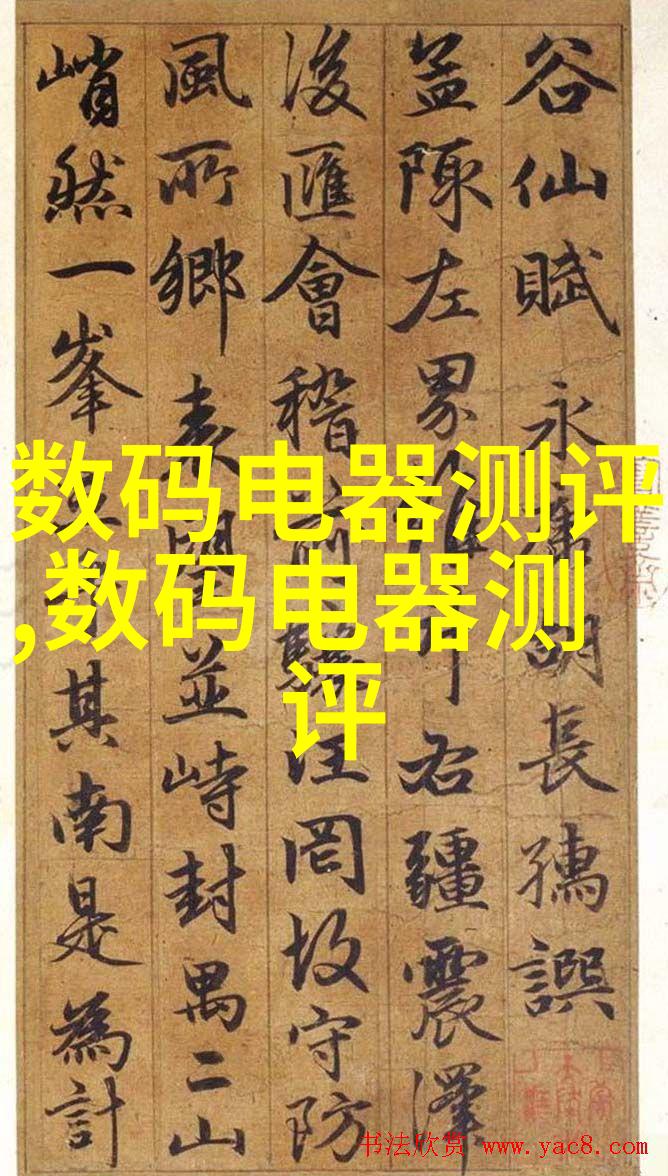 谷仙賦永康胡長孺譔
陳左界右疆震澤
後匯會稽前汪罔故守防
風所鄉表並峙封禺二山
峭然一峯其南是為計
数码电器测评
,数码电器测
评
书法欣赏 www.yac8.com